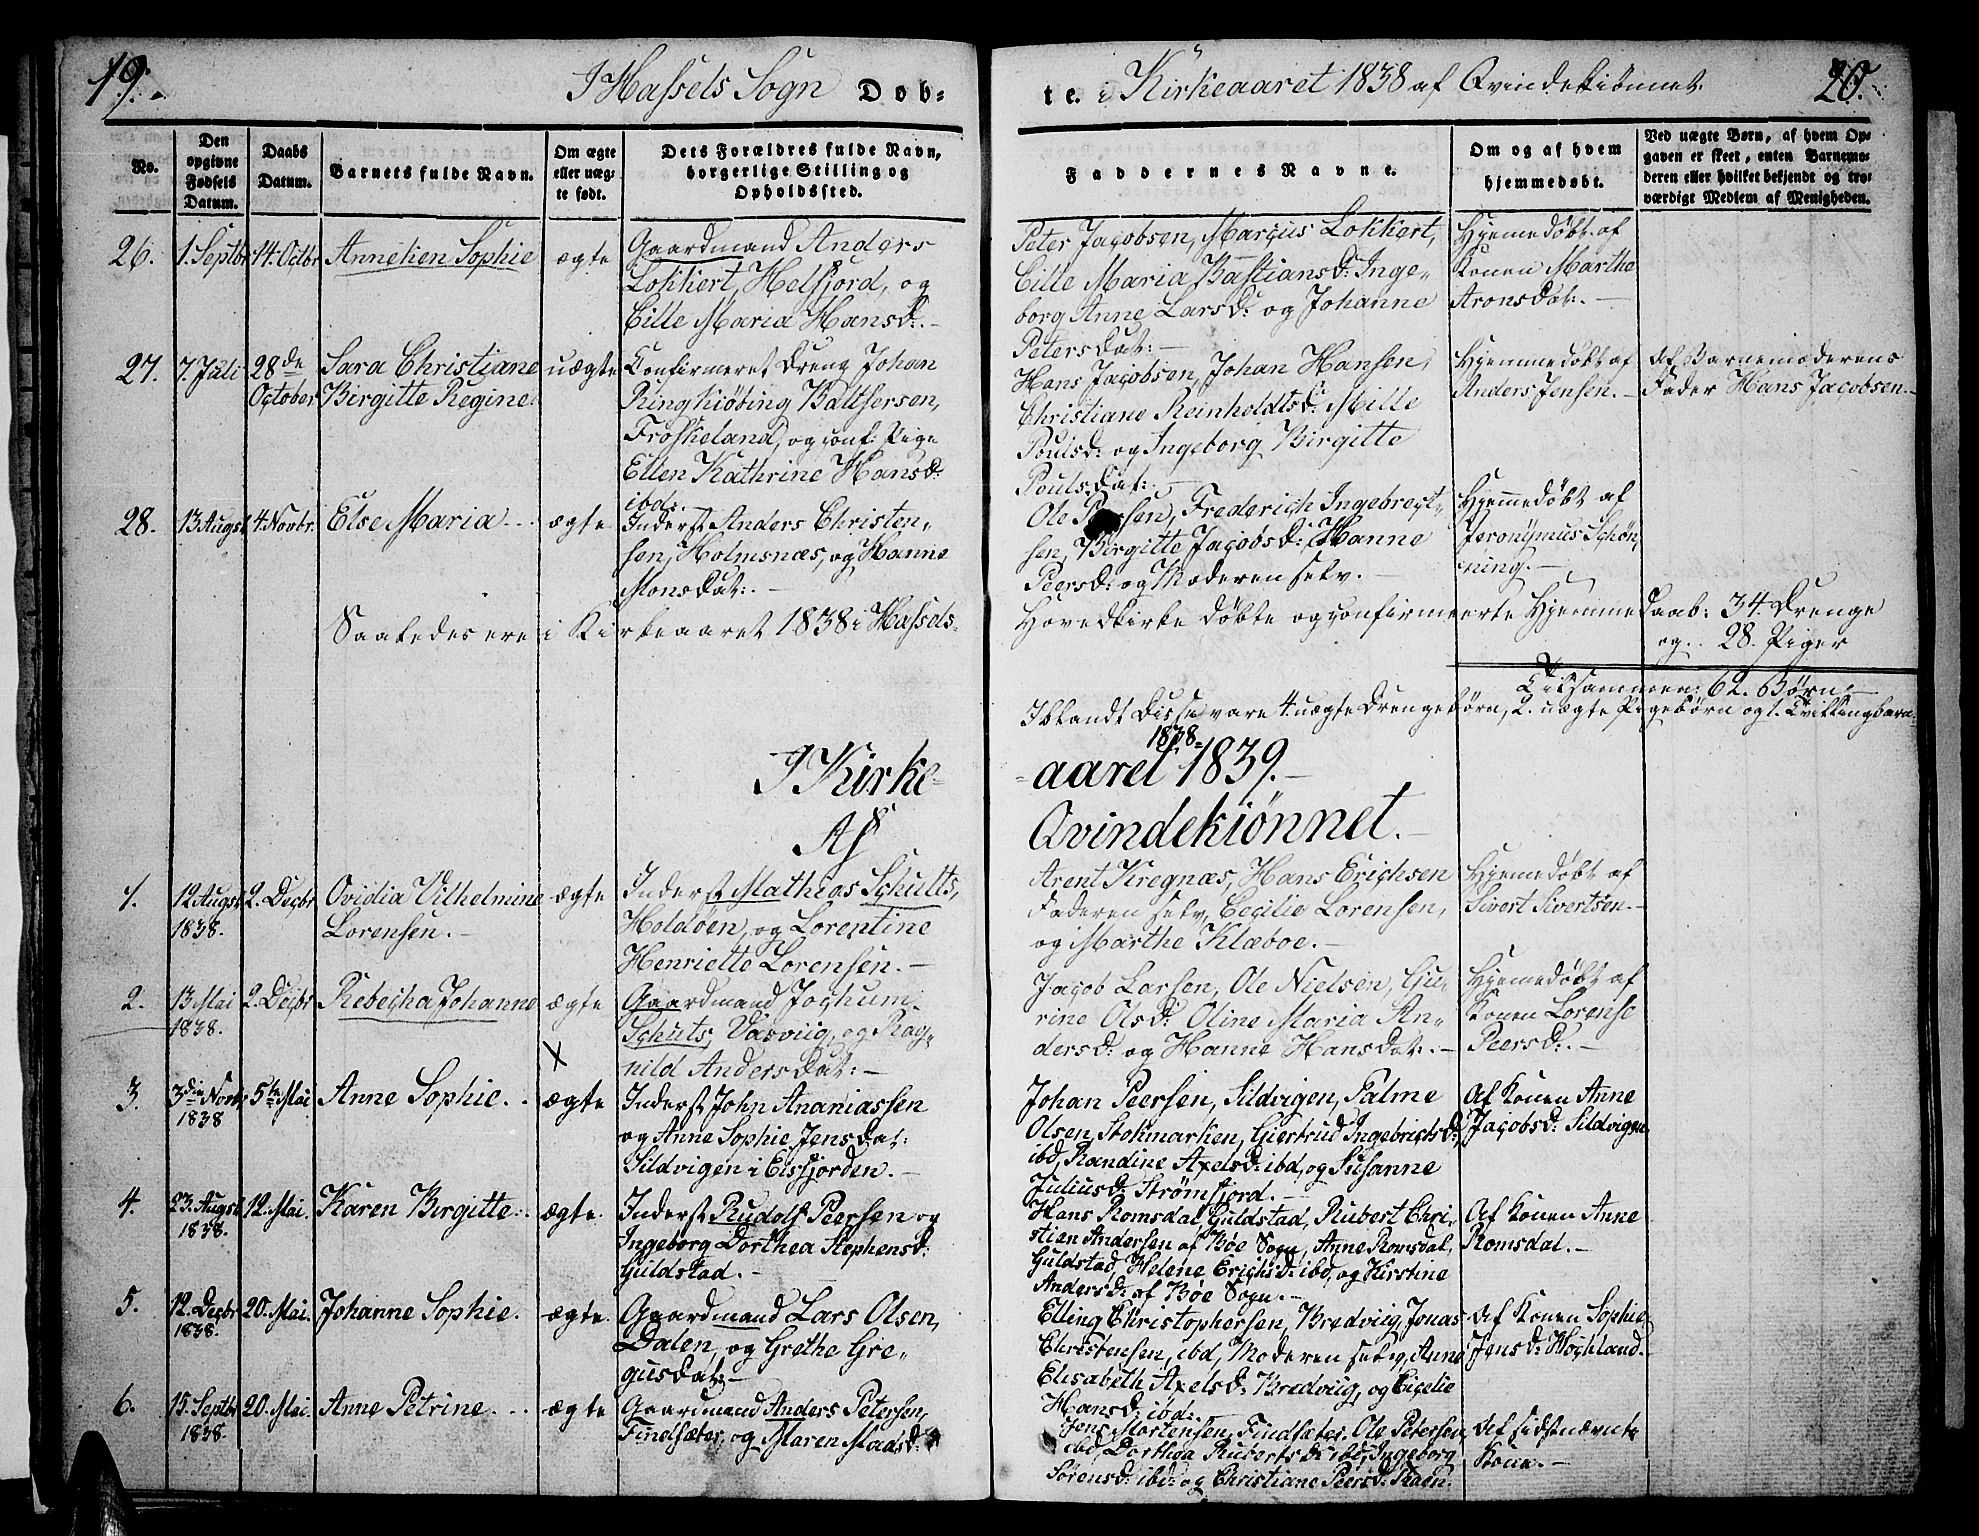 19.
I Hassels Sogn Dob-
te. i Kirkeaaret 1838 af Qvindekiönnet.
20.
No.
Den
opgivne
Fødsels
Datum.
Daabs
Datum.
Barnets fulde Navn.
Om ægte
eller uæg-
te født.
Dets Forældres fulde Navn,
borgerlige Stilling og
Opholdssted.
Faddernes Navne.
Om og af hvem
hjemmedøbt.
Ved uægte Børn, af hvem Op-
gaven er skeet, enten Barnemo-
deren eller hvilket bekjendt og tro-
værdigt Medlem af Menigheden.
26. 1. Septbr 14. Octbr Annelien Sophie ægte
Gaardmand Anders
Lokkert, Helfjord, og
Cille Maria Hansd:
Peter Jacobsen, Marcus Lokkert,
Cille Maria Bastiansd: Inge-
borg Anne Larsd: og Johanne
Petersdat:
Hjemedøbt af
Konen Marthe
Aronsdat:
27. 7. Juli 28de
October
Sara Christiane
Birgitte Regine
uægte
Confirmeret Dreng Johan
Ringkiöbing Baltsersen,
Froskeland, og conf: Pige
Ellen Kathrine Hansd:
ibd:
Hans Jacobsen, Johan Hansen,
Christiane Reinholdtsd: Mille
Poulsd: og Ingeborg Birgitte
Poulsdat:
Hjemmedøbt af
Anders Jensen.
Af Barnemoderens
Fader Hans Jacobsen.
28. 13 Augst 4. Novbr. Else Maria ægte
Inderst Anders Christen-
sen, Holmsnæs, og Hanne
Monsdat:
Ole Frederich Ingebrect-
sen, Birgitte Jacobsd: Hanne
Peersd: og Moderen selv.
Hjemmedøbt af
Jeronÿmus Schøn-
ning.
Saaledes ere i Kirkeaaret 1838 i Hassels-
Hovedkirke døbte og confirmeerte Hjemmedaab: 34. Drenge
og 28. Piger
Tilsammen: 62. Börn.
Iblandt disse vare 4 uægte Drengebørn, 2. uægte Pigebørn og 1. Tvillingbarn.
I Kirke-
1838-
aaret 1839.
Af
Qvindekiönnet.
1. 12 Augst
1838.
2. Decbr
Ovidia Vilhelmine
Lorensen.
ægte
Inderst Mathias Schults,
Holdøen, og Lorentine
Henriette Lorensen.
Arent Kregnæs, Hans Erichsen
Faderen selv, Cecilie Lorensen,
og Marthe Klæboe.
Hjemedøbt af
Sivert Sivertsen.
2. 13 Mai
1838.
2. Decbr Rebecha Johanne ægte
Gaardmand Jochum
Schults, Vasviig, og Rag-
nild Andersdat:
X
Jacob Larsen, Ole Nielsen, Gu-
rine Olsd: Oline Maria An-
dersd: og Hanne Hansdat:
Hjemedøbt af
Konen Lorense
Peersd:
3. 3die Novbr
1838
5te Mai Anne Sophie ægte
Inderst John Ananiassen
og Anne Sophie Jensdat:
Sildvigen i Eisfjorden.
Johan Peersen, Sildvigen, Palme
Olsen Stokmarken, Giertrud Ingebrictsd:
ibd, Randine Axelsd: ibd, og Susanne
Juliusd: Strømfjord.
Af Konen Anne
Jacobsd: Sildvigen
4. 23. Augst
1838.
12. Mai. Karen Birgitte. ægte.
Inderst Rudolf Peersen og
Ingeborg Dorthea Stephensd:
Guldstad.
Hans Romsdal, Guldstad, Rubert Chri-
stian Andersen af Bøe Sogn, Anne Romsdal,
Guldstad, Helene Erichsd: ibd, og Kirstine
Andersd: af Bøe Sogn.
Af Konen Anne
Romsdal.
5. 12. Decbr
1838.
20. Mai. Johanne Sophie. ægte.
Gaardmand Lars Olsen,
Dalen, og Grethe Gre-
gusdat:
Elling Christophersen, Bredviig, Jonas
Christensen, ibd, Moderen selv, Anne
Elisabeth Axelsd: Bredviig, og Cicelie
Hansd: ibd:
Af Konen Sophie
Jensd: Hochland.
6. 15. Septbr
1838.
20. Mai. Anne Petrine ægte
Gaardmand Anders Petersen,
Findsæter, og Maren Madsd:
Jens Mortensen, Findsæter, Ole Petersen
ibd, Dorthea Rubertsd: ibd, Ingeborg
Sørensd: ibd: og Christiane Peersd: Raen.
Af sidstnævnte
Kone.